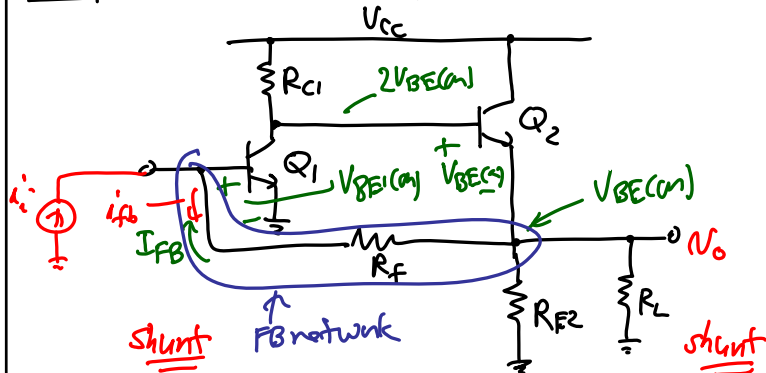 Vcc
RC1
2VBE(on)
Q2
Q1
+
VBE(on)
+
VBE1(on)
-
VBE(on)
ii
ifb
IFB
Rf
vo
RE2
RL
shunt
FB network
shunt